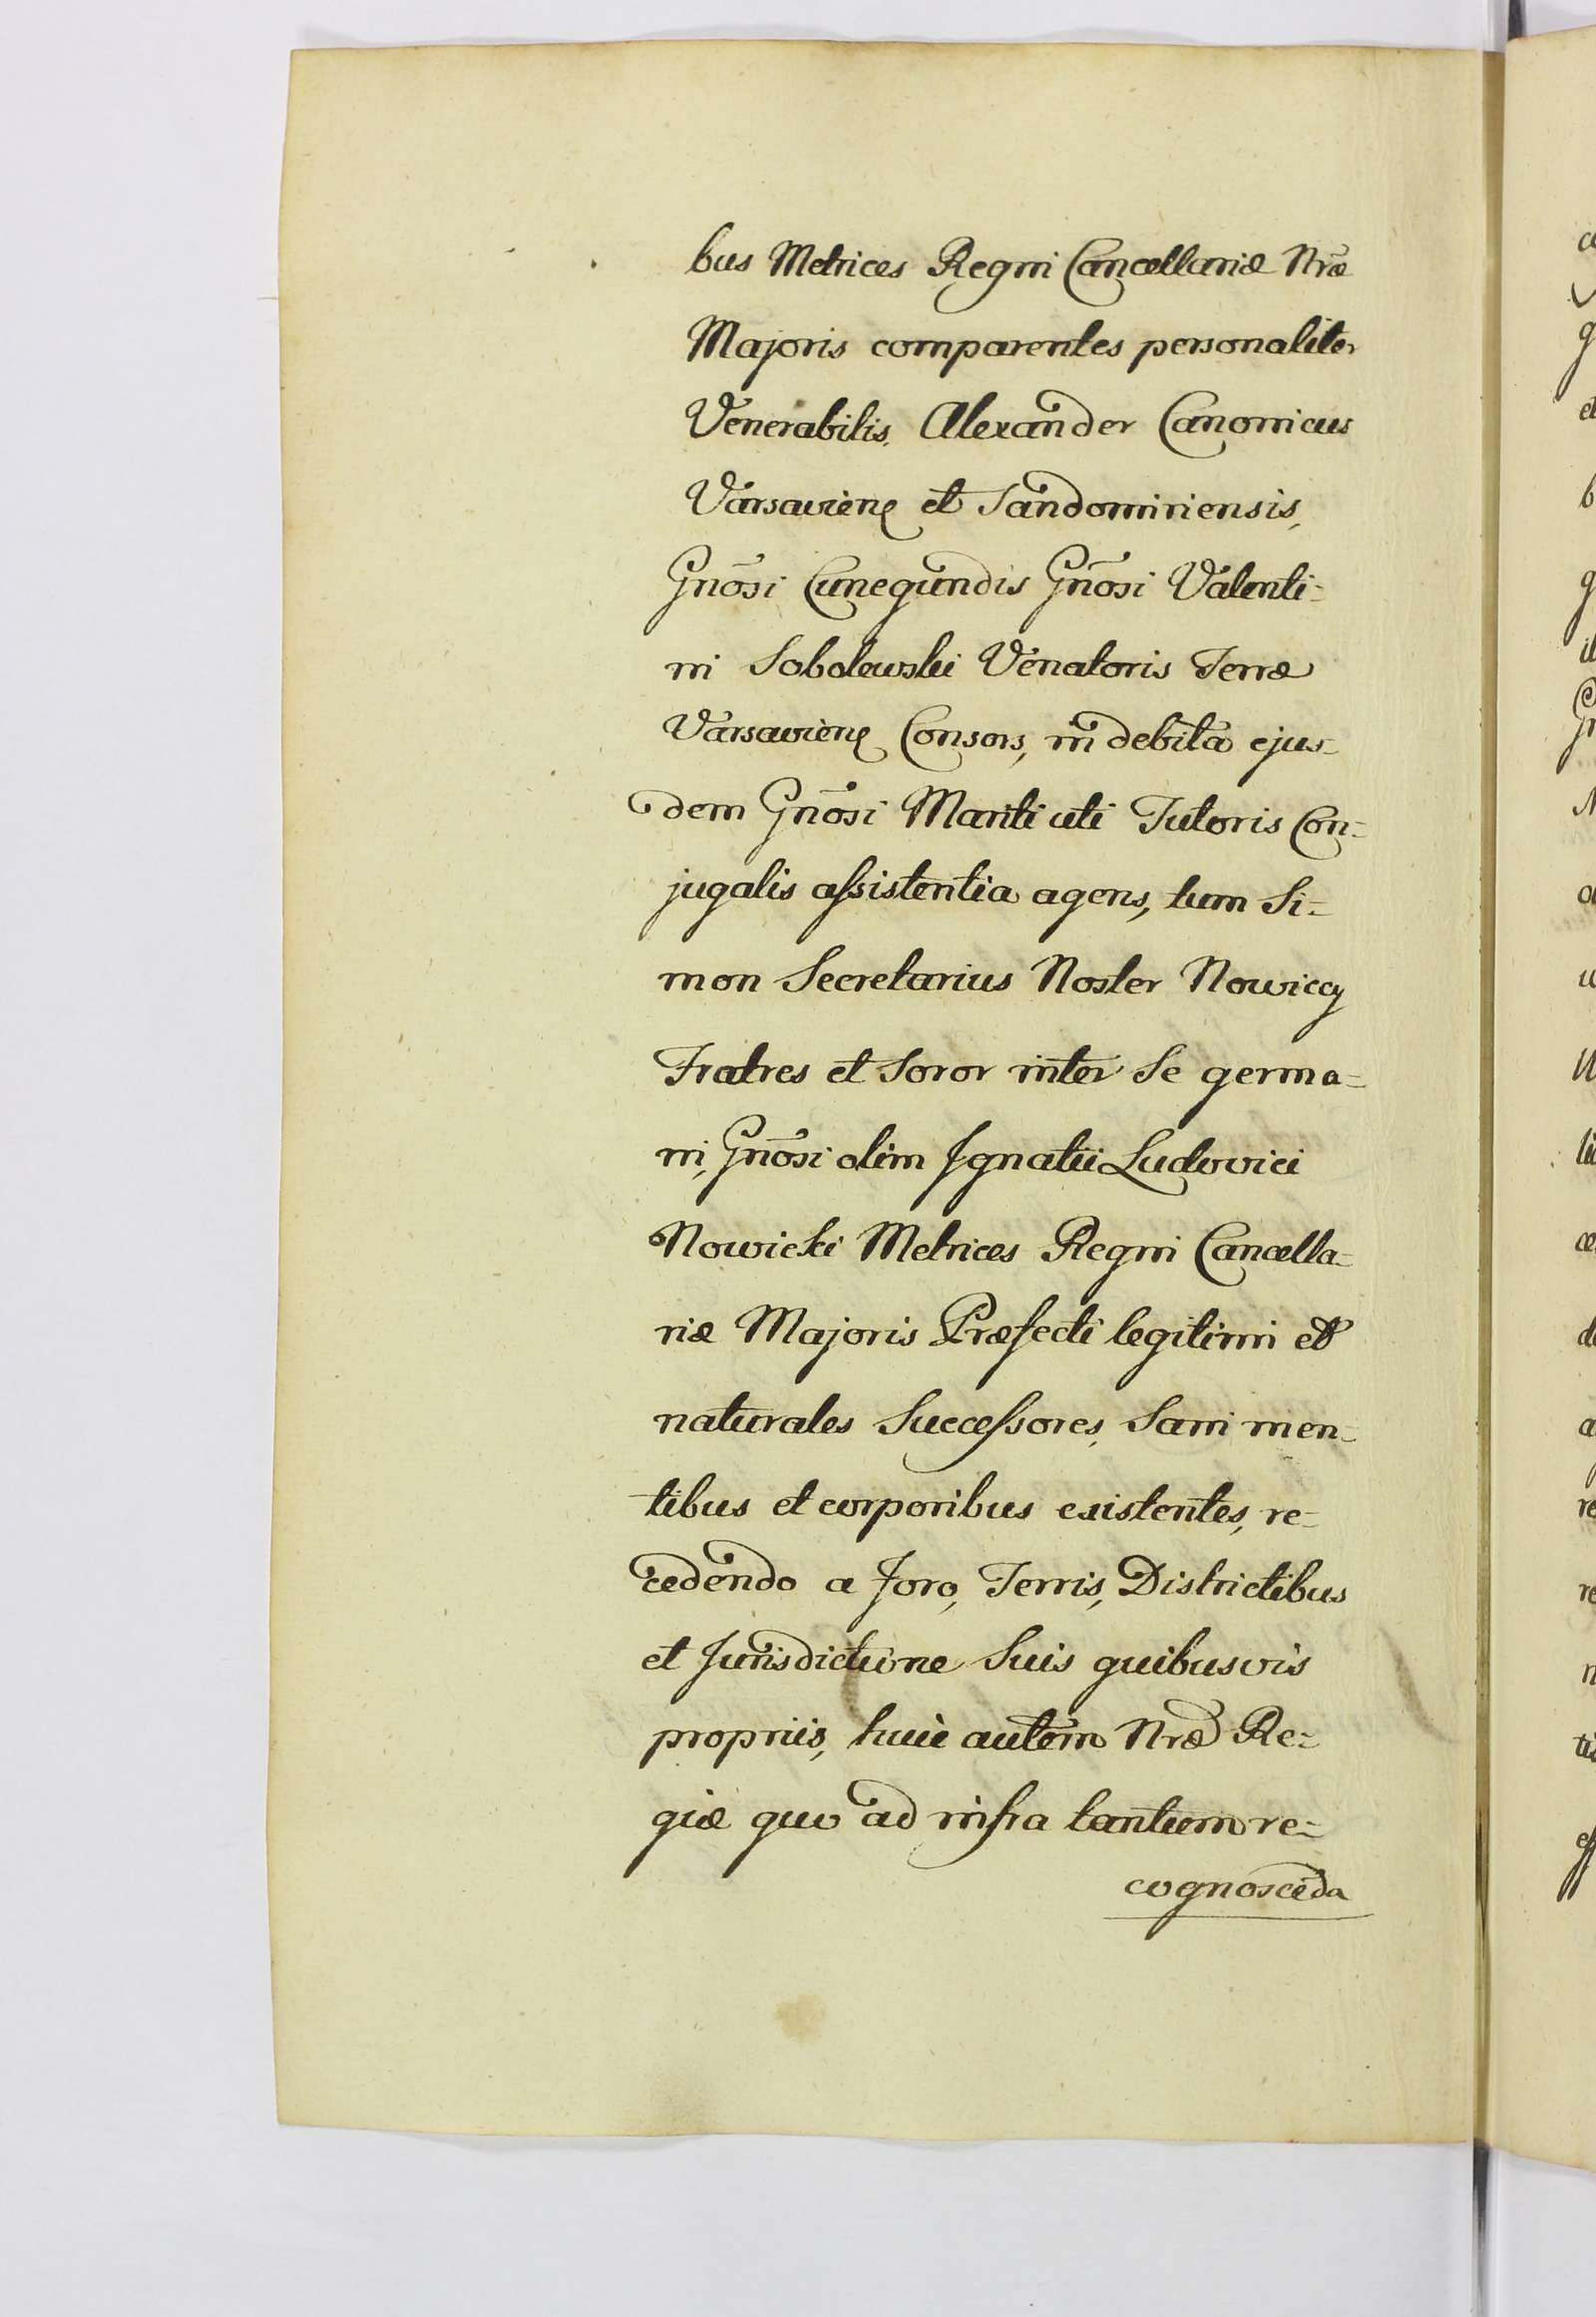 bus Metrices Regni Cancellariæ Nræ
Majoris comparentes personaliter
Venerabilis Alexander Canonicus
Varsaviens et Sandomiriensis,
Gnõsi Cunegundis Gnõsi Valenti-
ni Sobolewski Venatoris Terræ
Varsaviens Consors, in debita ejus-
dem Gnõsi Mariti uti Tutoris Con-
jugalis assistentia agens, tum Si-
mon Secretarius Noster Nowiccy
Fratres et Soror inter Se germa-
ni, Gnõsi olim Ignatii Ludovici
Nowicki Metrices Regni Cancella-
riæ Majoris Præfecti legitimi et
naturales Successores, Sani men-
tibus et corporibus existentes, re-
cedendo a Foro, Terris, Districtibus
et Jurisdictione Suis quibusvis
propriis, huic autem Nræ Re-
giæ quo ad infra tantum re-
cognoscenda